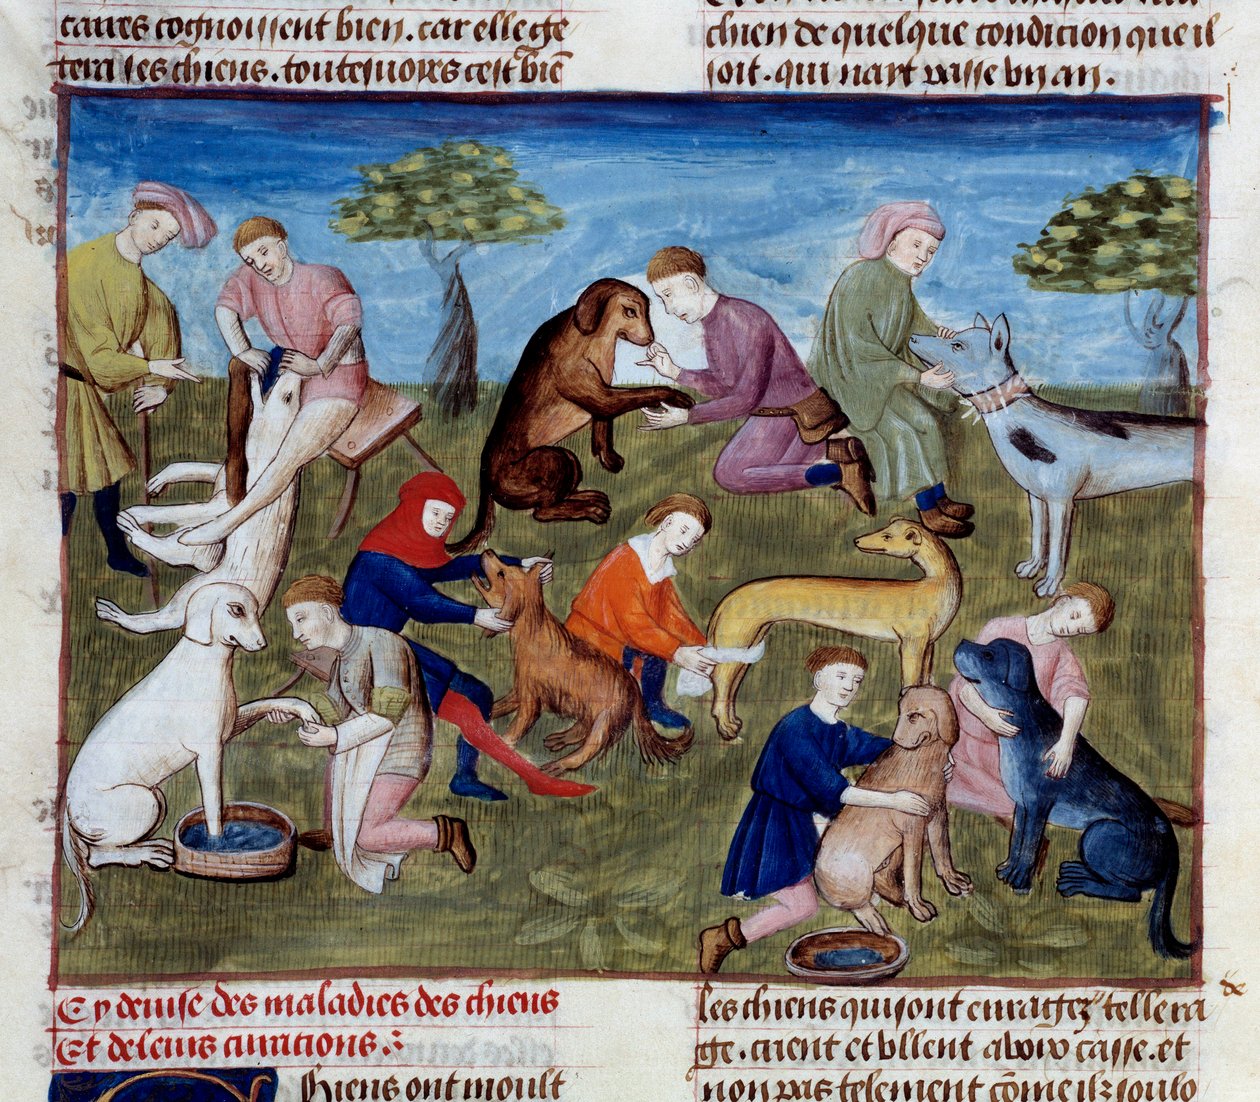 caires cognoissent bien. car elle gete
tera les chiens. toutesuores cest biē
chien de quelque condicion que il
soit. qui nait passe vn an.
Cy deuise des maladies des chiens
Et de leurs curations.
Chiens ont moult
les chiens qui sont enragez telle ra
ge. crient et vllent a voix casse. et
non pas telement cōme ilz soulo